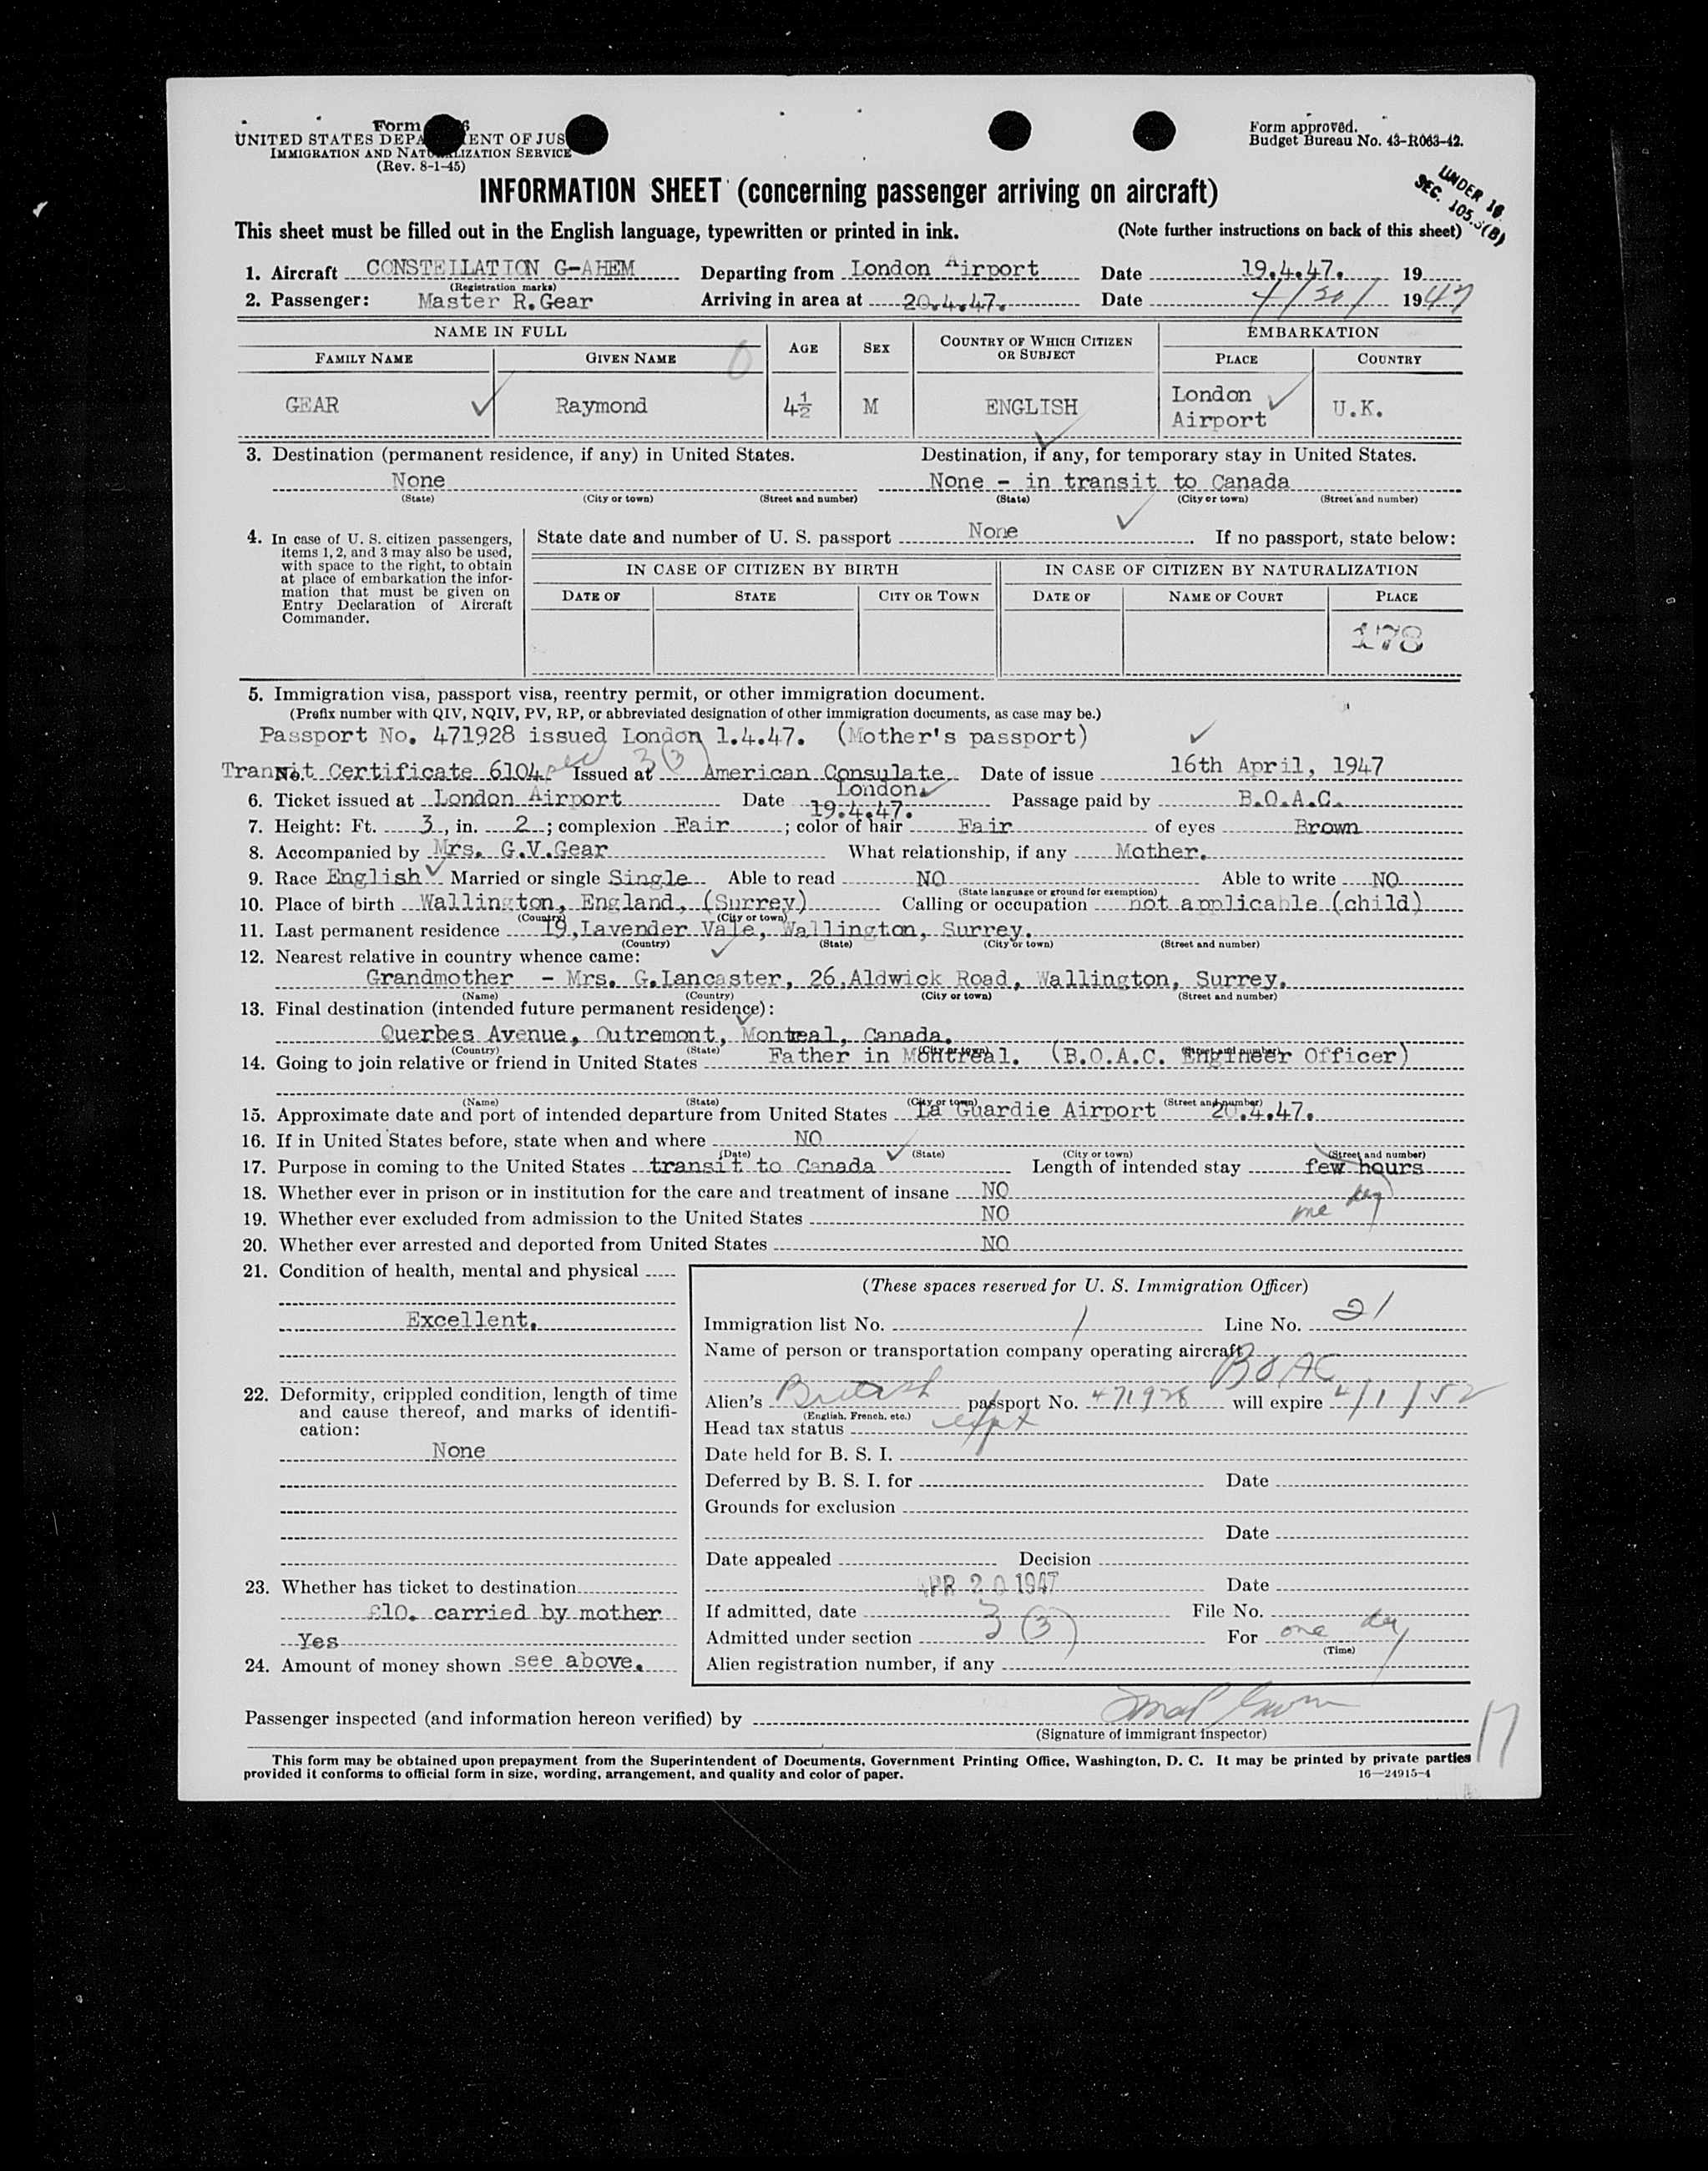 Form 6
UNITED STATES DEPA ENT OF JUS
IMMIGRATION AND NATURALIZATION SERVICE
(Rev. 8-1-45)
Form approved.
Budget Bureau No. 43-R063-42.
UNDER 16
SEC. 105.3(B)
INFORMATION SHEET (concerning passenger arriving on aircraft)
This sheet must be filled out in the English language, typewritten or printed in ink. (Note further instructions on back of this sheet)
1. Aircraft CONSTELLATION G-AHEM Departing from London Airport Date 19.4.47. 19
(Registration marks)
2. Passenger: Master R.Gear Arriving in area at 20.4.47. Date 4/20/ 1947
NAME IN FULL AGE SEX COUNTRY OF WHICH CITIZEN OR SUBJECT EMBARKATION
FAMILY NAME GIVEN NAME PLACE COUNTRY
GEAR Raymond 4½ M ENGLISH London Airport U.K.
3. Destination (permanent residence, if any) in United States. Destination, if any, for temporary stay in United States.
None None - in transit to Canada
(State) (City or town) (Street and number) (State) (City or town) (Street and number)
4. In case of U. S. citizen passengers, items 1, 2, and 3 may also be used, with space to the right, to obtain at place of embarkation the information that must be given on Entry Declaration of Aircraft Commander.
State date and number of U. S. passport None If no passport, state below:
IN CASE OF CITIZEN BY BIRTH IN CASE OF CITIZEN BY NATURALIZATION
DATE OF STATE CITY OR TOWN DATE OF NAME OF COURT PLACE
178
5. Immigration visa, passport visa, reentry permit, or other immigration document.
(Prefix number with QIV, NQIV, PV, RP, or abbreviated designation of other immigration documents, as case may be.)
Passport No. 471928 issued London 1.4.47. (Mother's passport)
sec 3(3)
Transit Certificate 6104 Issued at American Consulate London. Date of issue 16th April, 1947
6. Ticket issued at London Airport Date 19.4.47. Passage paid by B.O.A.C.
7. Height: Ft. 3, in. 2; complexion Fair; color of hair Fair of eyes Brown
8. Accompanied by Mrs. G.V.Gear What relationship, if any Mother.
9. Race English Married or single Single Able to read NO Able to write NO
(State language or ground for exemption)
10. Place of birth Wallington, England, (Surrey) Calling or occupation not applicable (child)
(Country) (City or town)
11. Last permanent residence 19, Lavender Vale, Wallington, Surrey.
(Country) (State) (City or town) (Street and number)
12. Nearest relative in country whence came:
Grandmother - Mrs. G.Lancaster, 26,Aldwick Road, Wallington, Surrey.
(Name) (Country) (City or town) (Street and number)
13. Final destination (intended future permanent residence):
Querbes Avenue, Outremont, Montreal, Canada.
(Country) (State) (City or town) (Street and number)
14. Going to join relative or friend in United States Father in Montreal. (B.O.A.C. Engineer Officer)
(Name) (State) (City or town) (Street and number)
15. Approximate date and port of intended departure from United States La Guardie Airport 20.4.47.
16. If in United States before, state when and where NO
(Date) (State) (City or town) (Street and number)
17. Purpose in coming to the United States transit to Canada Length of intended stay few hours
one day
18. Whether ever in prison or in institution for the care and treatment of insane NO
19. Whether ever excluded from admission to the United States NO
20. Whether ever arrested and deported from United States NO
21. Condition of health, mental and physical
Excellent.
22. Deformity, crippled condition, length of time and cause thereof, and marks of identification:
None
23. Whether has ticket to destination
£10. carried by mother
Yes
24. Amount of money shown see above.
(These spaces reserved for U. S. Immigration Officer)
Immigration list No. 1 Line No. 21
Name of person or transportation company operating aircraft
BOAC
Alien's British passport No. 471928 will expire 4/1/52
(English, French, etc.)
Head tax status expt
Date held for B. S. I.
Deferred by B. S. I. for Date
Grounds for exclusion
Date
Date appealed Decision
APR 20 1947 Date
If admitted, date File No.
Admitted under section 3(3) For one day
(Time)
Alien registration number, if any
Passenger inspected (and information hereon verified) by
(Signature of immigrant inspector)
17
This form may be obtained upon prepayment from the Superintendent of Documents, Government Printing Office, Washington, D. C. It may be printed by private parties
provided it conforms to official form in size, wording, arrangement, and quality and color of paper. 16—24915-4